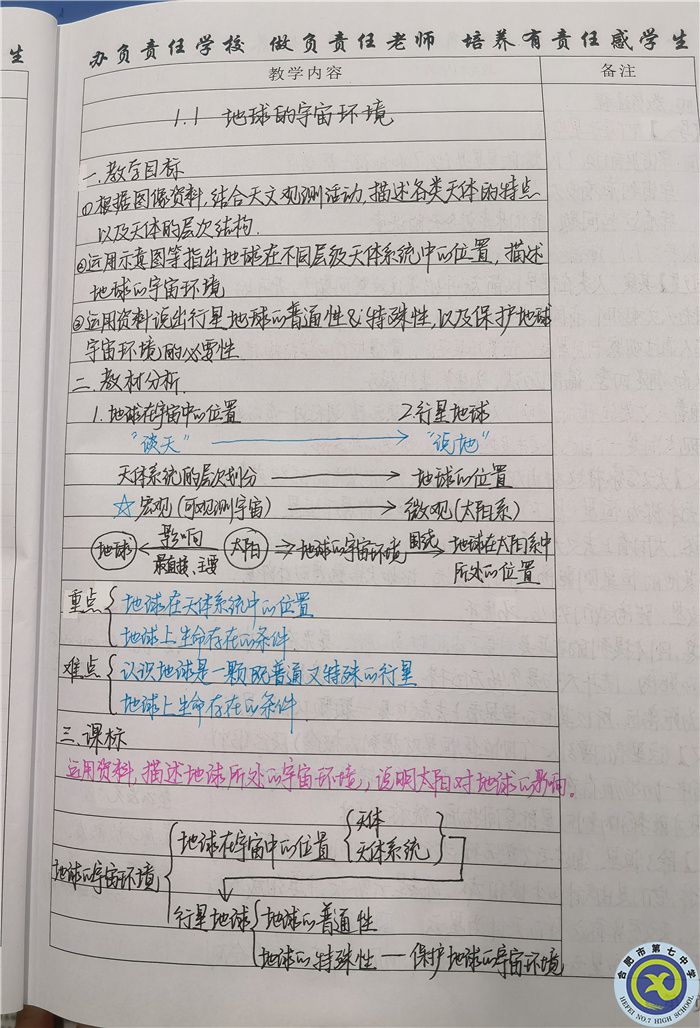 生
办负责任学校 做负责任老师 培养有责任感学生
教学内容
备注
1.1 地球的宇宙环境
一.教学目标
①根据图像资料,结合天文观测活动,描述各类天体的特点
以及天体的层次结构.
②运用示意图等指出地球在不同层级天体系统中的位置,描述
地球的宇宙环境
③运用资料说出行星地球的普通性&特殊性,以及保护地球
宇宙环境的必要性.
二.教材分析.
1.地球在宇宙中的位置 2.行星地球
"谈天" → "说地"
天体系统的层次划分 → 地球的位置
☆宏观(可观测宇宙) → 微观(太阳系)
地球 ← 影响 太阳 ⇒ 地球的宇宙环境 围绕 → 地球在太阳系中
最直接、主要 所处的位置
重点 { 地球在天体系统中的位置
地球上生命存在的条件
难点 { 认识地球是一颗既普通又特殊的行星
地球上生命存在的条件
三.课标
运用资料,描述地球所处的宇宙环境,说明太阳对地球的影响。
地球在宇宙中的位置 { 天体
天体系统 }
地球的宇宙环境 {
行星地球 { 地球的普通性
地球的特殊性 — 保护地球的宇宙环境
合肥市第七中学
HEFEI NO.7 HIGH SCHOOL